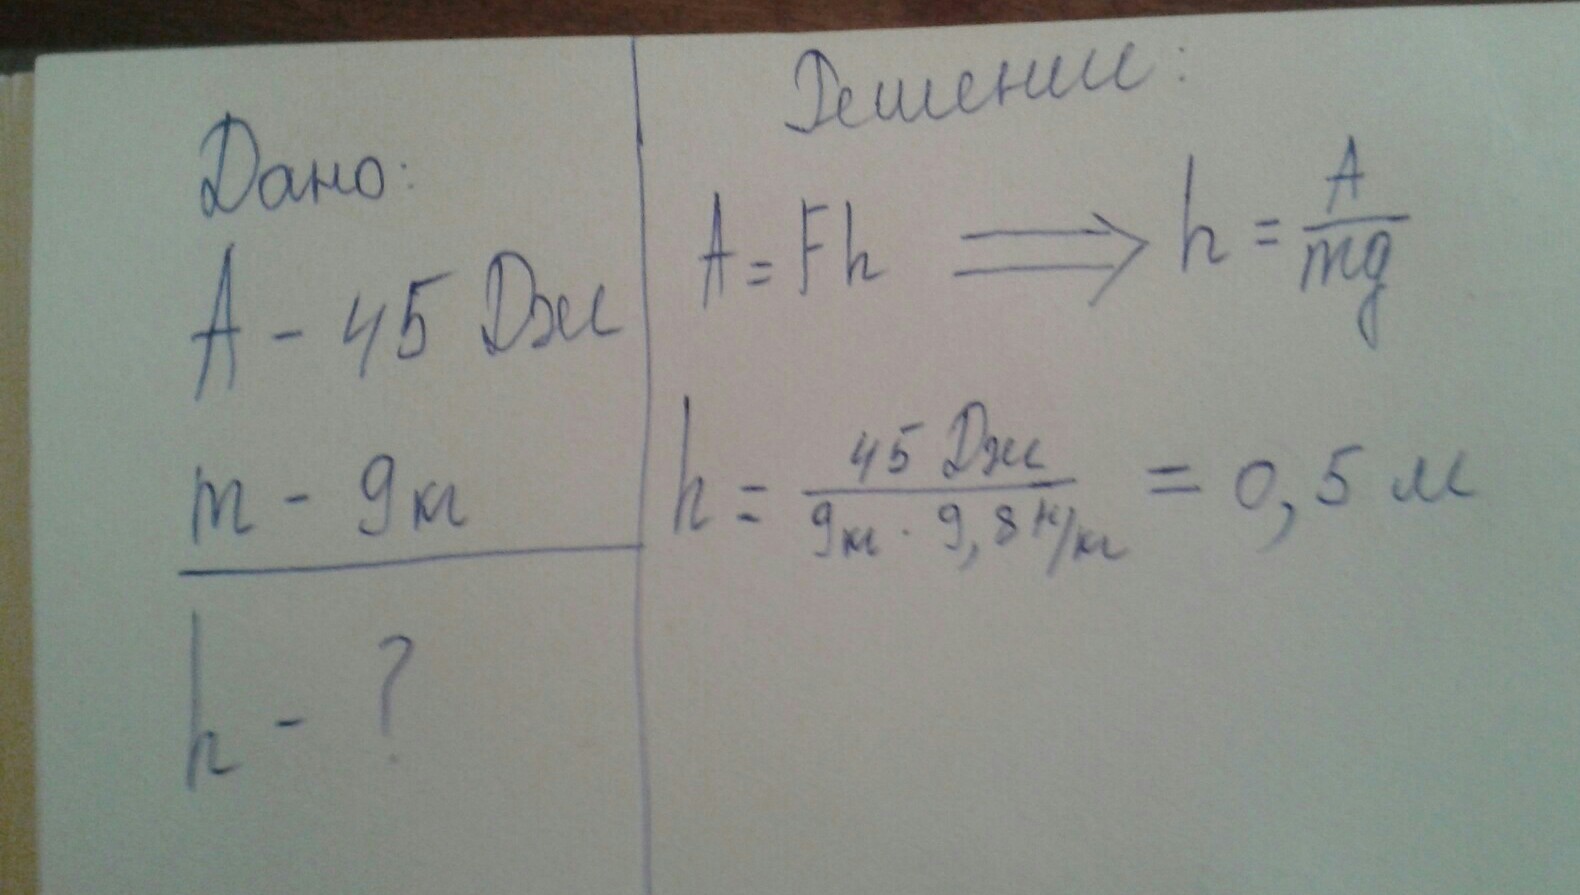 Дано:
A - 45 Дж
m - 9кг
h - ?
Решение:
A = Fh ⟹ h = A/mg
h = 45 Дж / 9кг · 9,8 Н/кг = 0,5 м